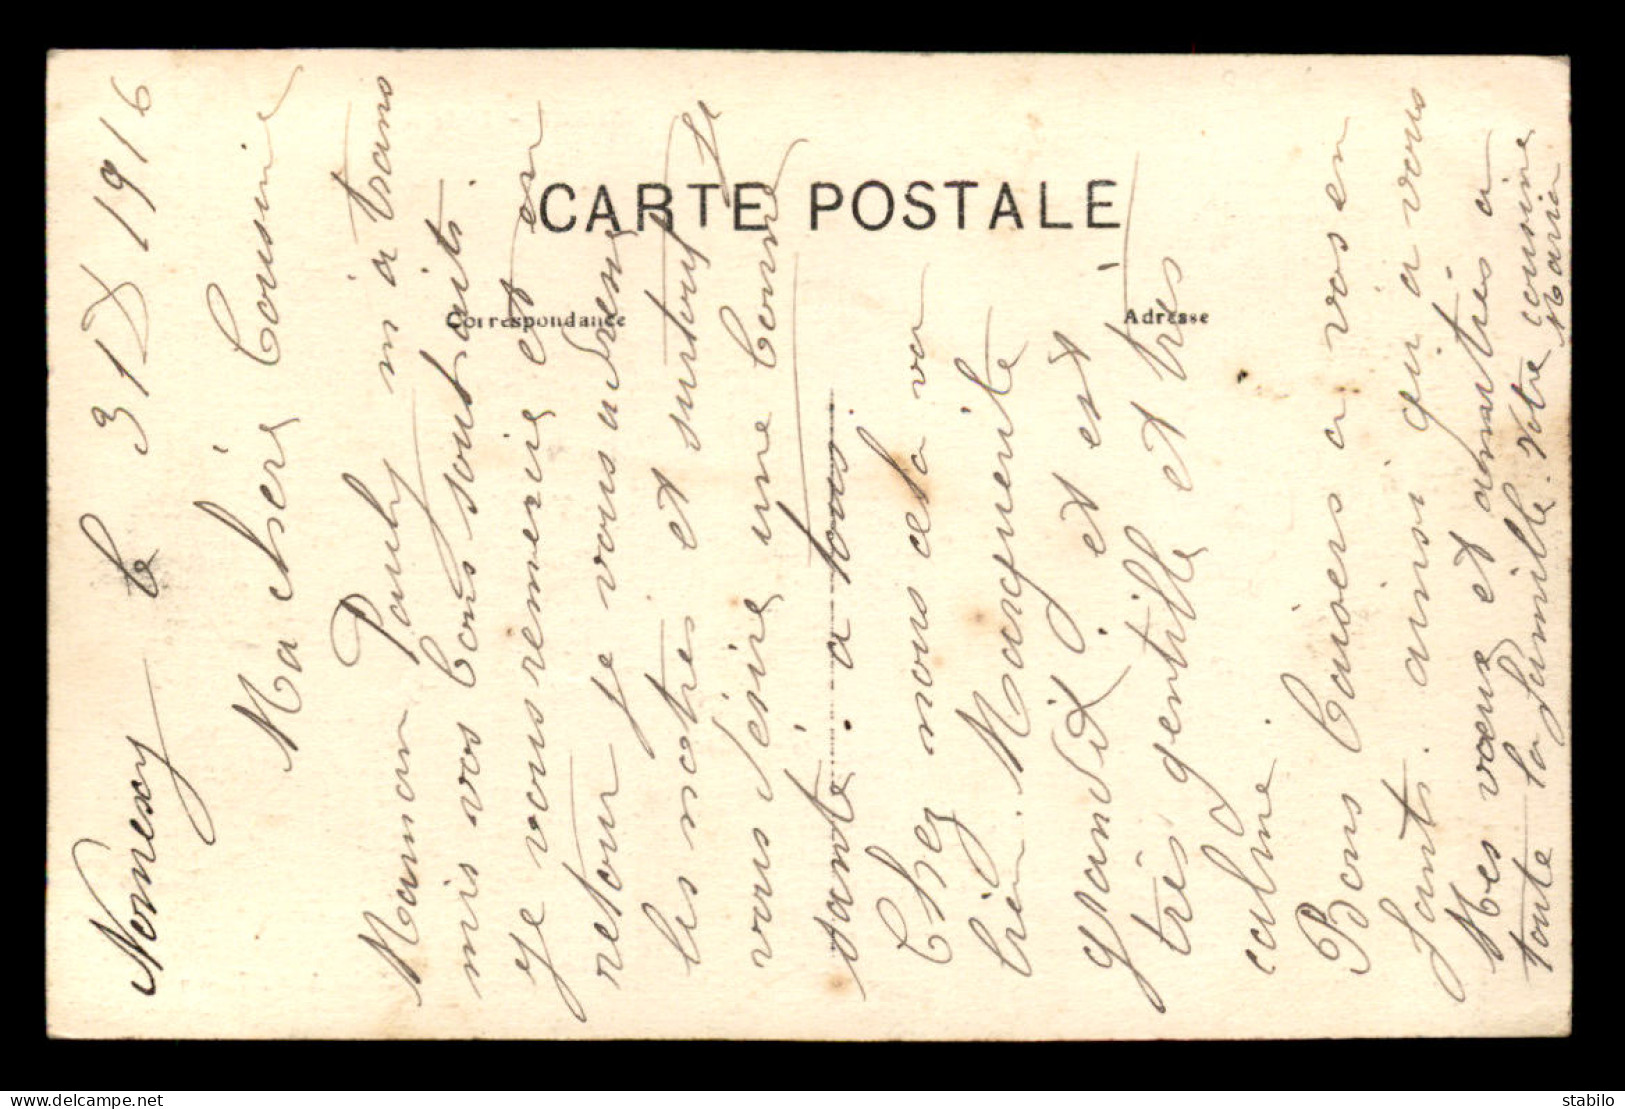 CARTE POSTALE
Correspondance
Adresse
Nomexy le 31 X 1916
Ma chère Cousine
Maman Pauly m'a trans
mis vos bons souhaits
je vous remercie et en
retour je vous adresse
les notres et surtout je
vous désire une bonne
santé a tous.
Chez nous cela va
bien. Marguerite
grandit et est
très gentille et très
calme.
Bons baisers a vos en
fants. ainsi qu'à vous
Mes vœux et amitiés a
toute la famille. Votre cousine
Maria
stabilo
www.delcampe.net